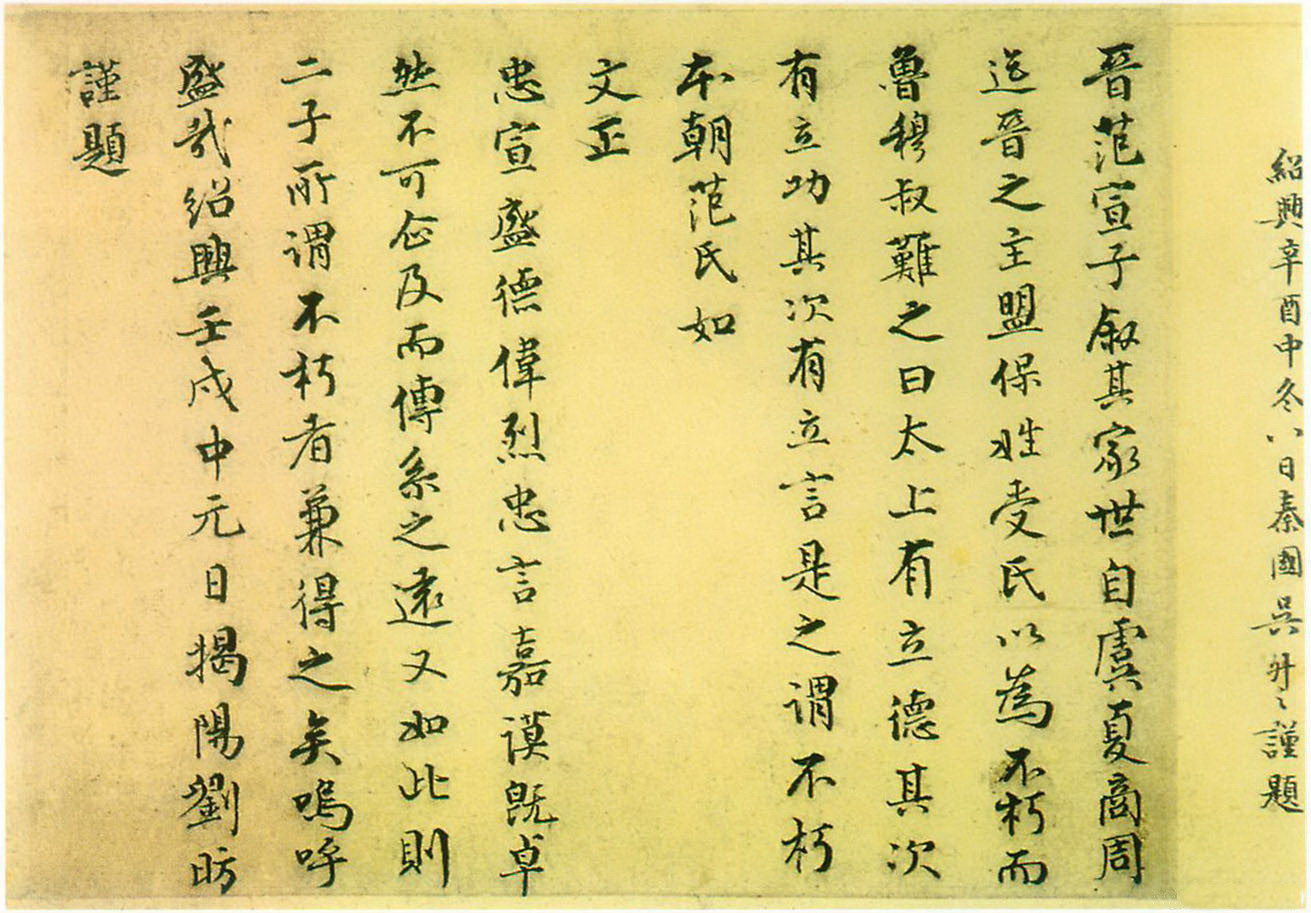 紹興辛酉中冬八日秦國吳升〻謹題
晉范宣子叙其家世自虞夏商周
迄晉之主盟保姓受氏以為不朽而
魯穆叔難之曰太上有立德其次
有立功其次有立言是之謂不朽
本朝范氏如
文正
忠宣盛德偉烈忠言嘉謨既卓
然不可企及而傳系之遠又如此則
二子所謂不朽者兼得之矣嗚呼
盛哉紹興壬戌中元日揭陽劉昉
謹題